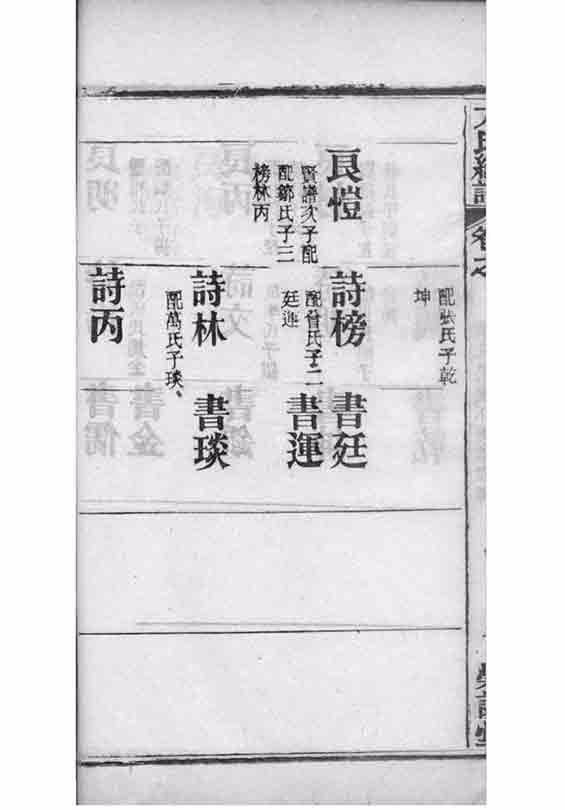 配張氏子乾
坤
良愷
賢譜次子配
配鄒氏子三
榜林丙
詩榜
配曾氏子二
廷運
詩林
配萬氏子琰
詩丙
書廷
書運
書琰